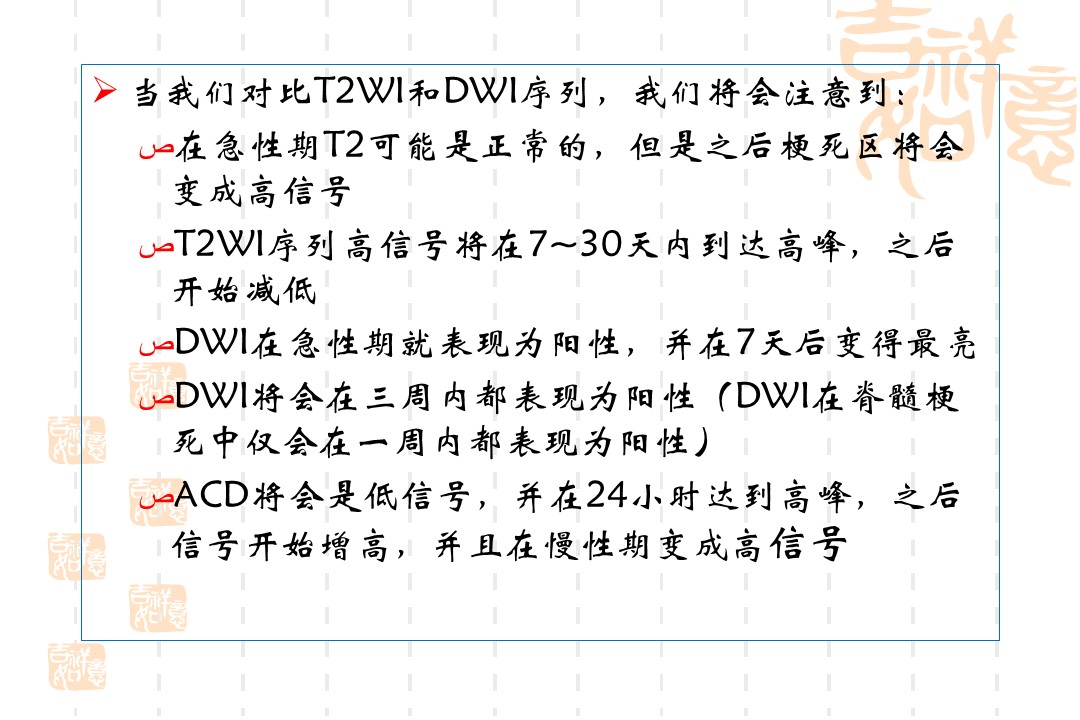 ➢ 当我们对比T2WI和DWI序列，我们将会注意到：
ص在急性期T2可能是正常的，但是之后梗死区将会
变成高信号
صT2WI序列高信号将在7~30天内到达高峰，之后
开始减低
صDWI在急性期就表现为阳性，并在7天后变得最亮
صDWI将会在三周内都表现为阳性（DWI在脊髓梗
死中仅会在一周内都表现为阳性）
صACD将会是低信号，并在24小时达到高峰，之后
信号开始增高，并且在慢性期变成高信号
吉祥如意
吉祥如意
吉祥如意
吉祥如意
吉祥如意
吉祥如意
吉祥如意